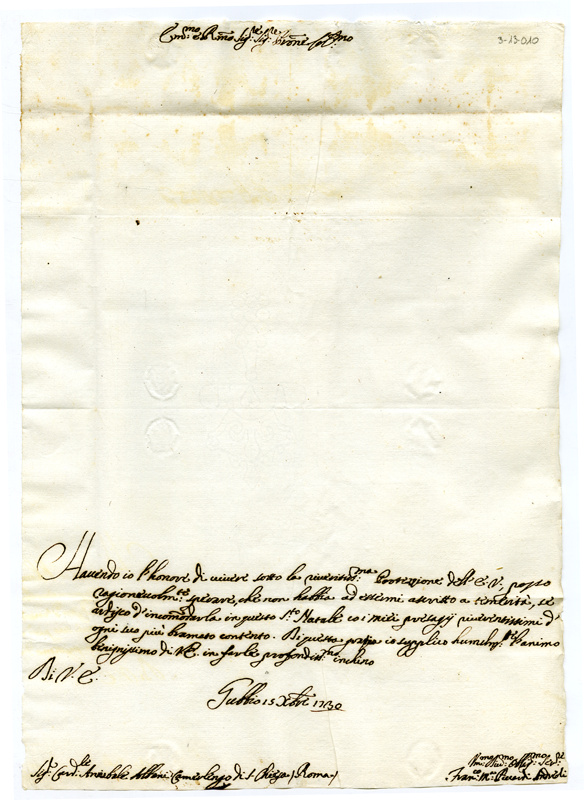 3-13-010
Em.mo e R.mo Sig.re Sig.re P.rone Col.mo
Havendo io l'honore di vivere sotto la riveritiss.ma Protezzione dell'E.V., posso
ragionevolm.te sperare, che non habbia ad essermi ascritto a temerità, se
ardisco d'incomodarla in questo S.to Natale co i miei presagij riverentissimi d'
ogni suo più bramato contento. Di questa grazia io supplico l'animo
benignissimo di V.E. in farle profondiss.mo inchino
Di V.E.
Gubbio 15 Xbre 1730
Sig.r Card.le Annibale Albani Camerlengo di S. Chiesa (Roma)
Fran.co M.a